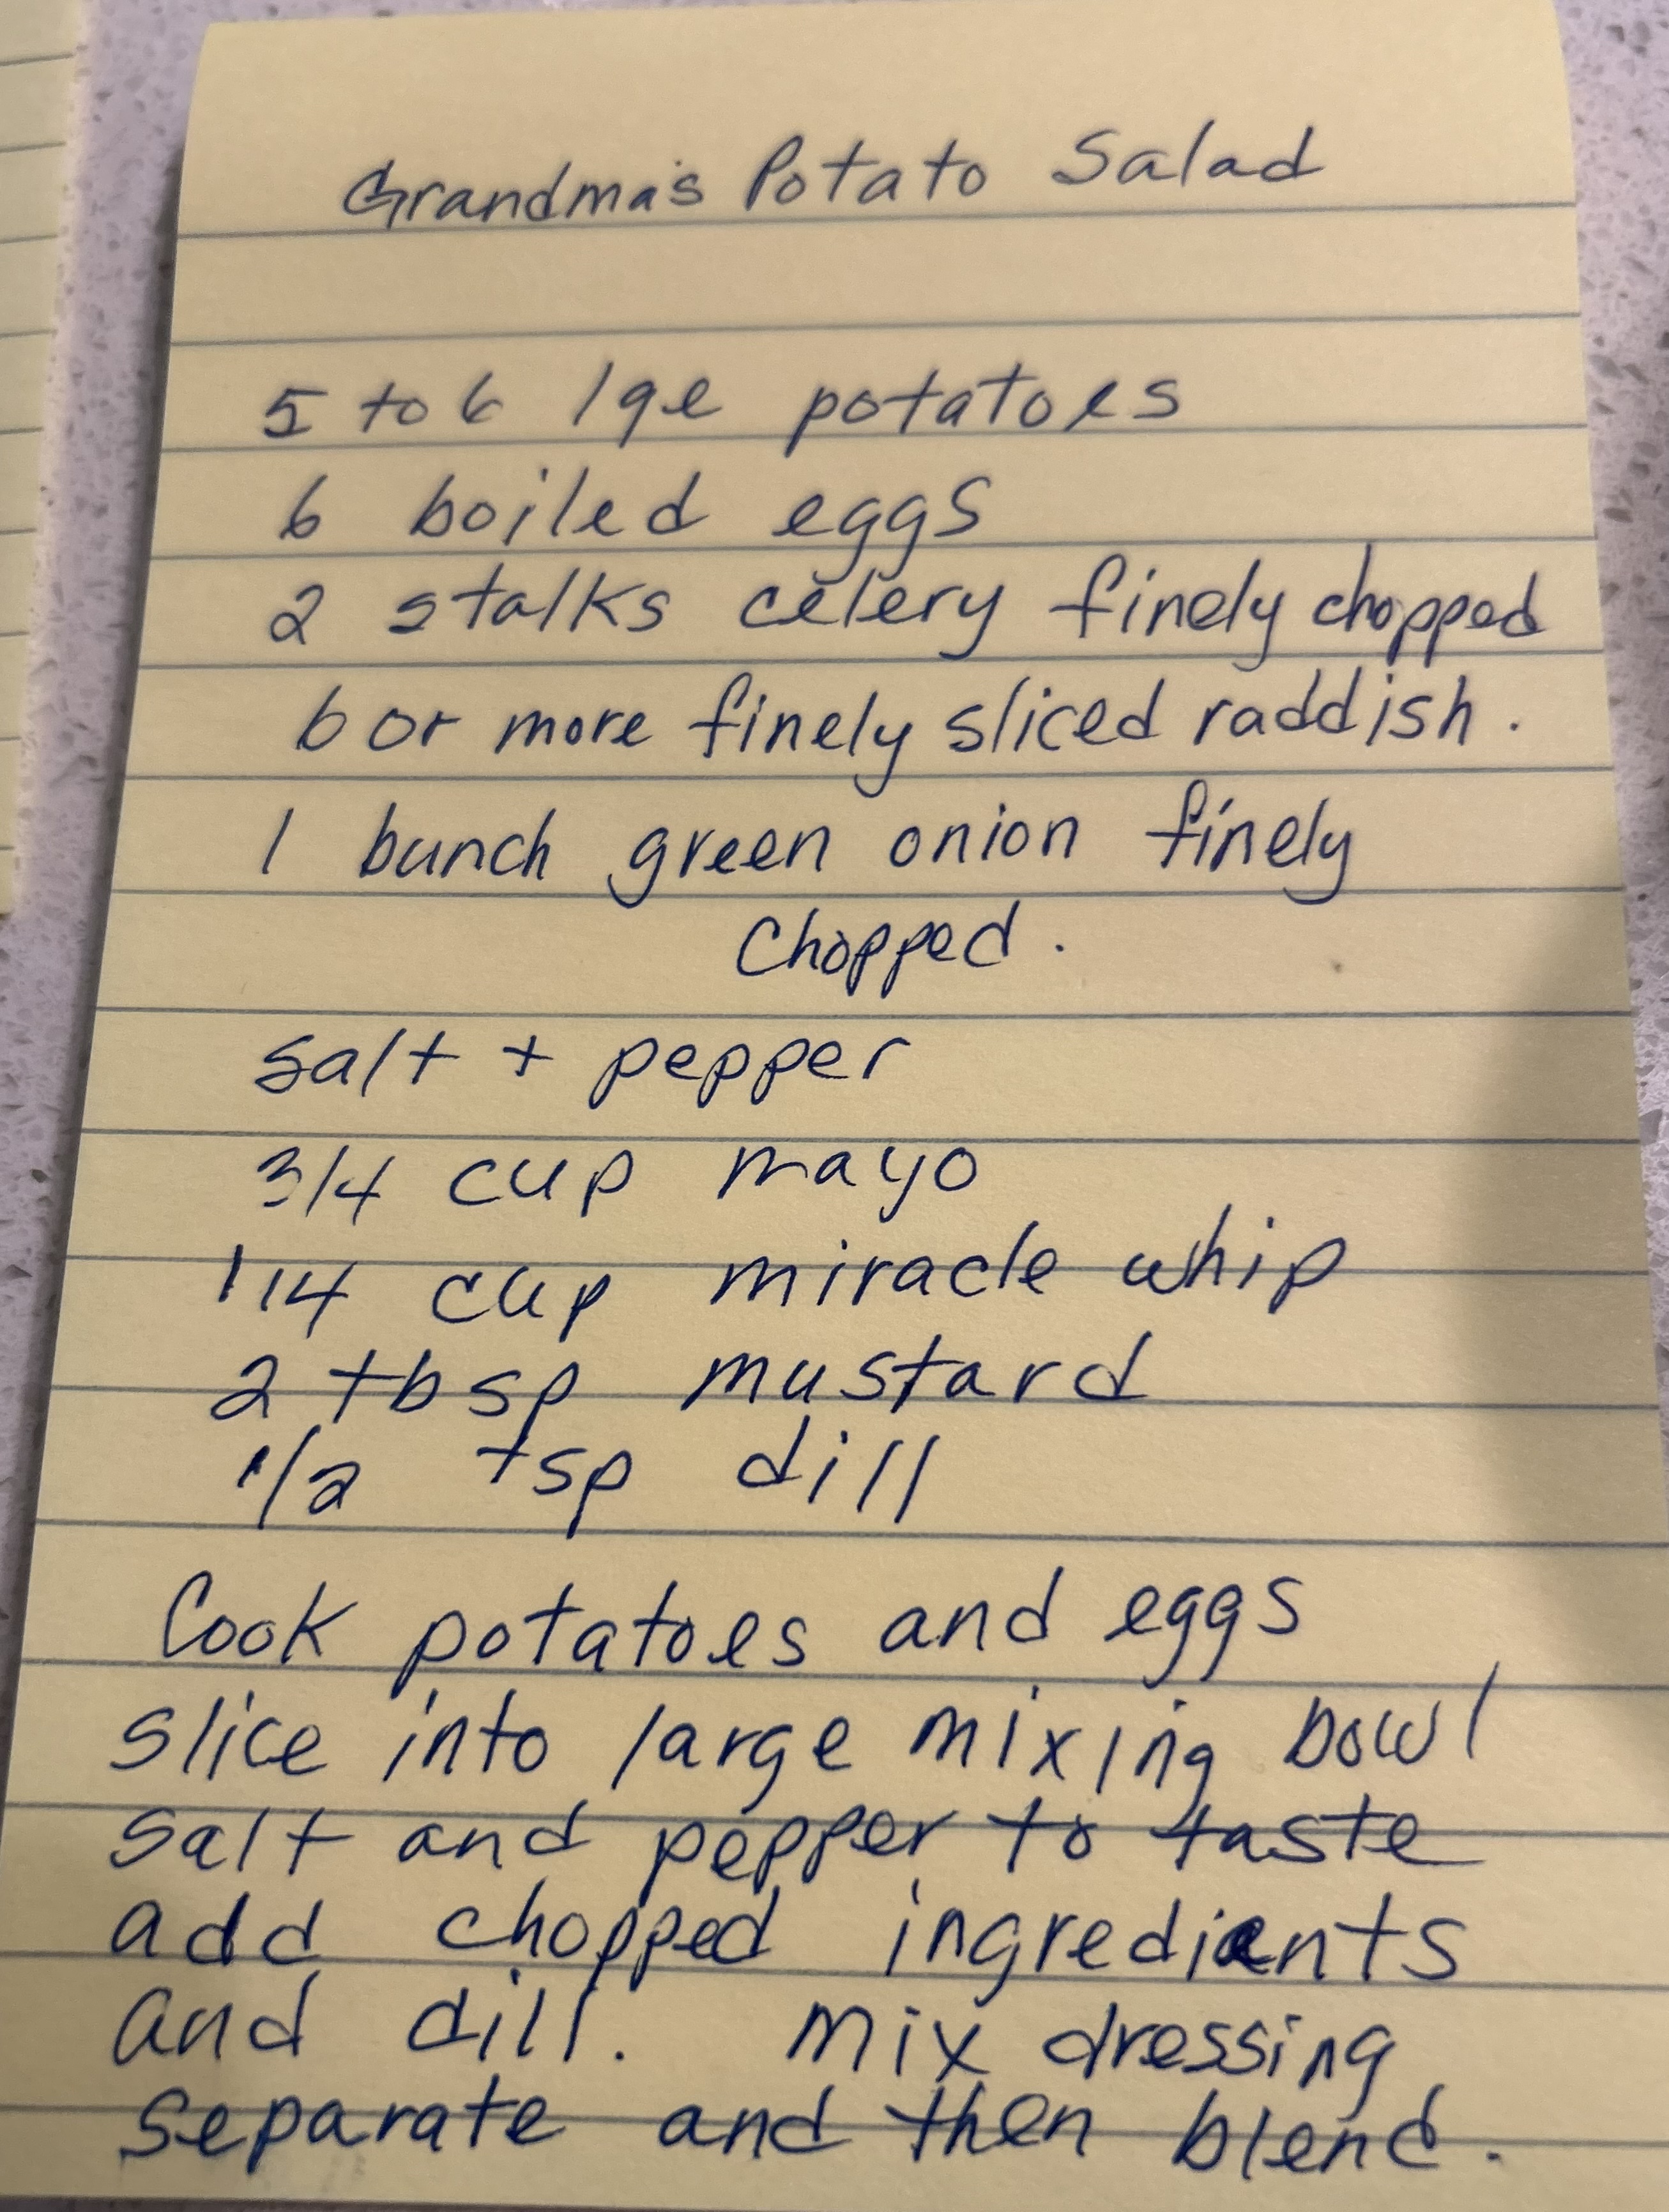 Grandma's Potato Salad
5 to 6 lge potatoes
6 boiled eggs
2 stalks celery finely chopped
6 or more finely sliced raddish.
1 bunch green onion finely
chopped.
salt + pepper
3/4 cup mayo
1/4 cup miracle whip
2 tbsp mustard
1/2 tsp dill
Cook potatoes and eggs
slice into large mixing bowl
salt and pepper to taste
add chopped ingredients
and dill. mix dressing
separate and then blend.